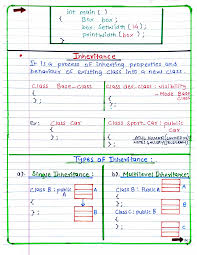 int main()
{
Box box;
box.setWidth(10);
printWidth(box);
}
Inheritance
It is a process of inheriting properties and
behaviour of existing class into a new class.
Class Base-class
Class der-class : visibility
- Mode Base
{
{
}
}
Ex: Class Car
Class Sport Car : public
Car
{
{
}
}
Types of Inheritance:
a). Single Inheritance:
b). Multilevel Inheritance:
Class B : public A
A
{
}
B
Class B : Public A
A
{
}
B
Class C : public B
C
{
}